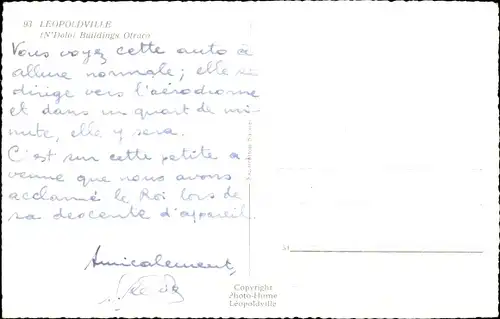 93 LEOPOLDVILLE
(N'Dolo) Buildings Otraco
Vous voyez cette auto à
allure normale; elle se
dirige vers l'aérodrome
et dans un quart de mi-
nute, elle y sera.
C'est sur cette petite a-
venue que nous avons
acclamé le Roi lors de
sa descente d'appareil.
Amicalement,
M
Copyright
Photo-Home
Léopoldville